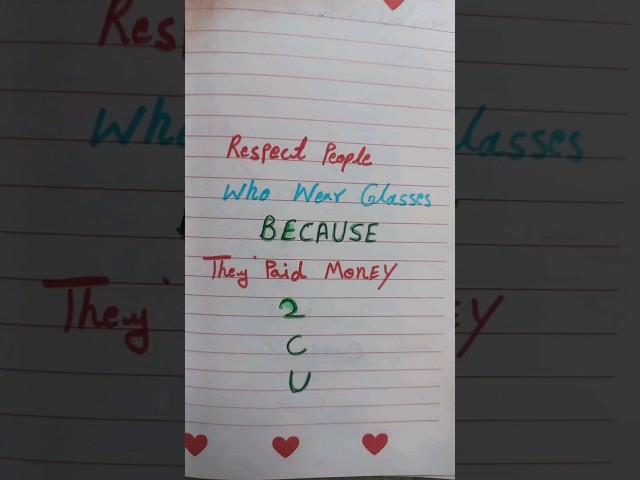 Respect People
Who Wear Glasses
BECAUSE
They Paid Money
2
C
U